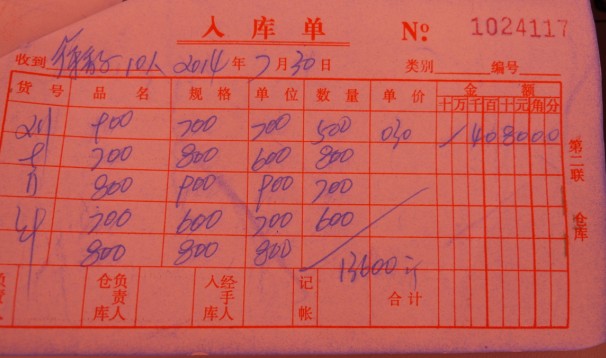 入库单 № 1024117
收到 10人 2014年 7月30日 类别 编号
货号 品名 规格 单位 数量 单价 金额
十万千百十元角分
900 700 700 500 030 4080.00
700 800 600 800
800 900 900 700
700 600 700 600
800 800 800
13600
仓库负责人 入库经手人 记帐 合计
第二联 仓库